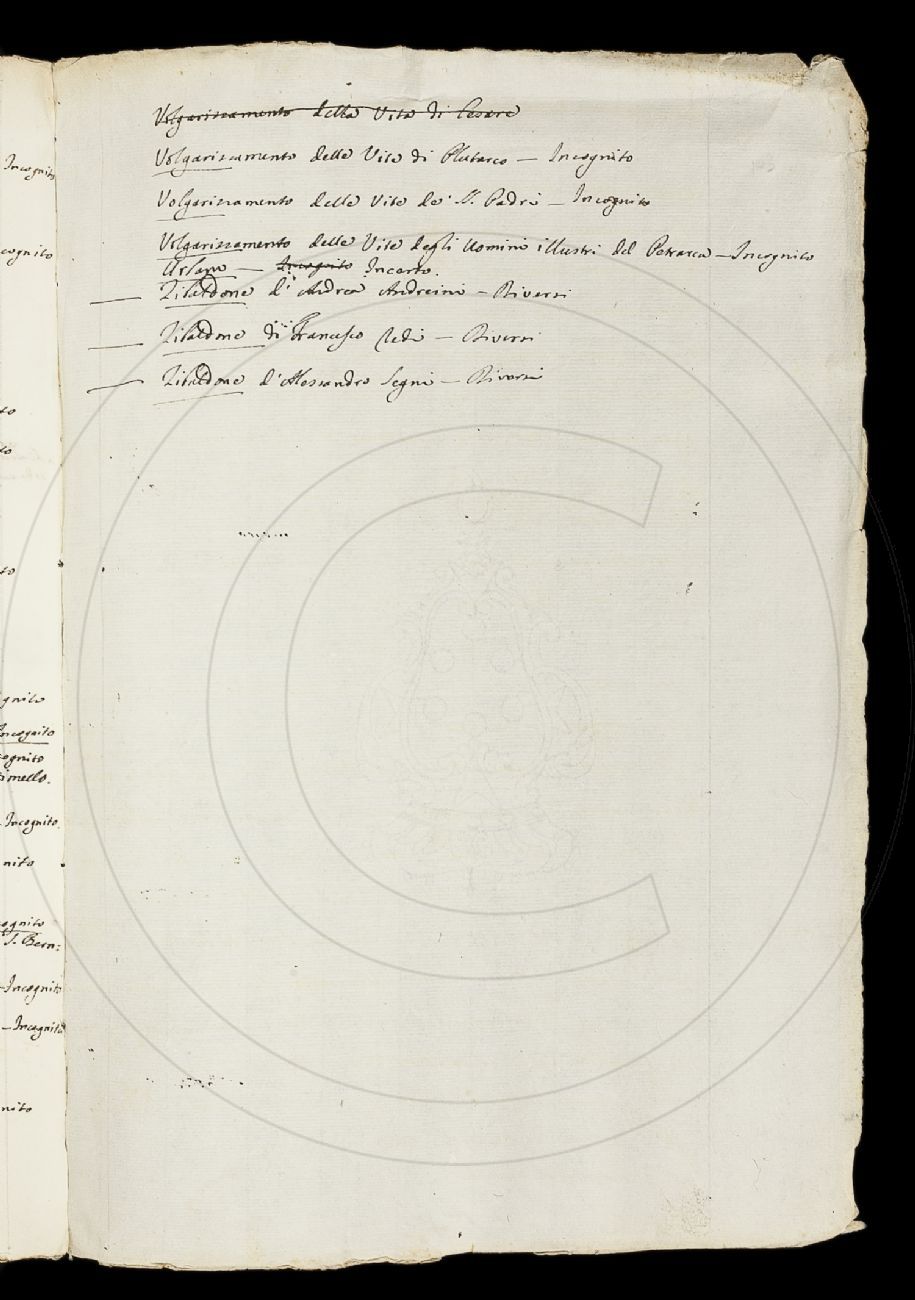 Incognito
cognito
to
to
to
gnito
Incognito
cognito
imello.
Incognito.
nito
cognito
S. Bern:
-Incognito
-Incognito
nito
Volgarizzamento della Vita di Cesare
Volgarizzamento delle Vite di Plutarco — Incognito
Volgarizzamento delle Vite de' SS. Padri — Incognito
Volgarizzamento delle Vite degli Uomini illustri del Petrarca — Incognito
— Incognito Incerto.
Zibaldone d'Andrea Andreini — Diversi
Zibaldone di Francesco Redi — Diversi
Zibaldone d'Alessandro Segni — Diversi